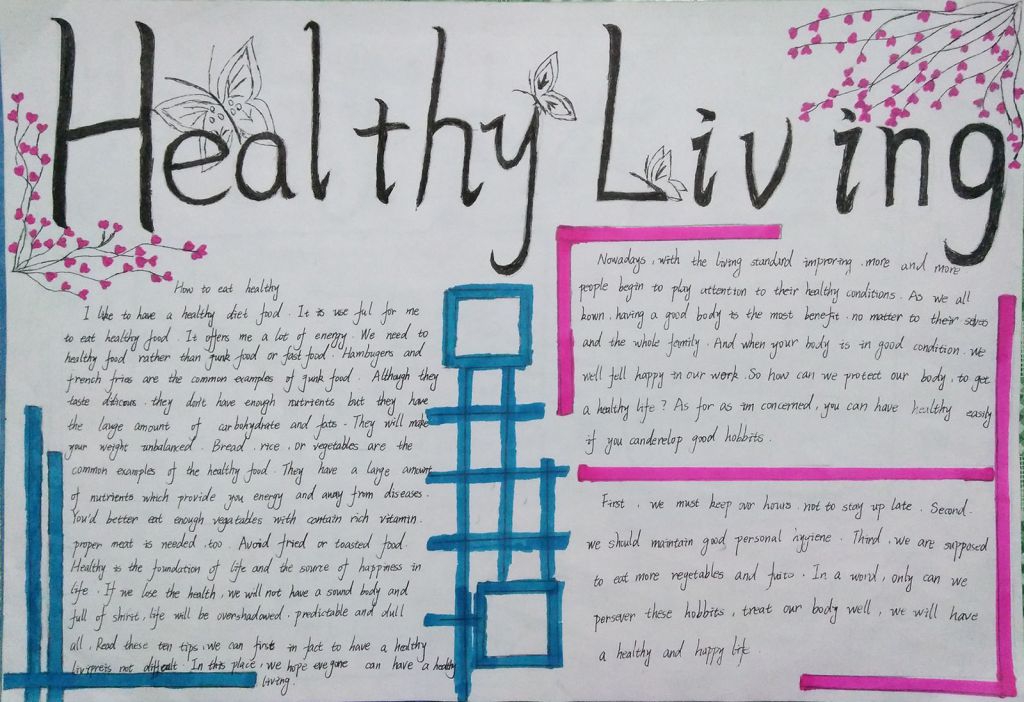 Healthy Living
How to eat healthy
I like to have a healthy diet food. It is use ful for me
to eat healthy food. It offers me a lot of energy. We need to
healthy food rather than junk food or fast food. Hambugers and
french fries are the common examples of junk food. Although they
taste dilicous. they don't have enough nutrients but they have
the large amount of carbohydrate and fats. They will make
your weight unbalanced. Bread, rice, or vegetables are the
common examples of the healthy food. They have a large amount
of nutrients which provide you energy and away from diseases.
You'd better eat enough vegatables with contain rich vitamin.
proper meat is needed, too. Avoid fried or toasted food.
Healthy is the foundation of life and the source of happiness in
life. If we lose the health, we will not have a sound body and
full of shirit, life will be overshadowed. predictable and dull
all. Read these ten tips, we can first in fact to have a healthy
is not difficult. In this place, we hope eveyone can have a healthy
living.
Nowadays, with the living standard improring, more and more
people begin to play attention to their healthy conditions. As we all
kown, having a good body is the most benefit. no matter to their selves
and the whole family. And when your body is in good condition. We
well fell happy in our work. So how can we protect our body, to get
a healthy life? As for as im concerned, you can have healthy easily
if you canderelop good hobbits.
First, we must keep our hours, not to stay up late. Second.
we should maintain good personal hygiene. Third, we are supposed
to eat more vegetables and . In a word, only can we
persever these hobbits, treat our body well, we will have
a healthy and happy life.